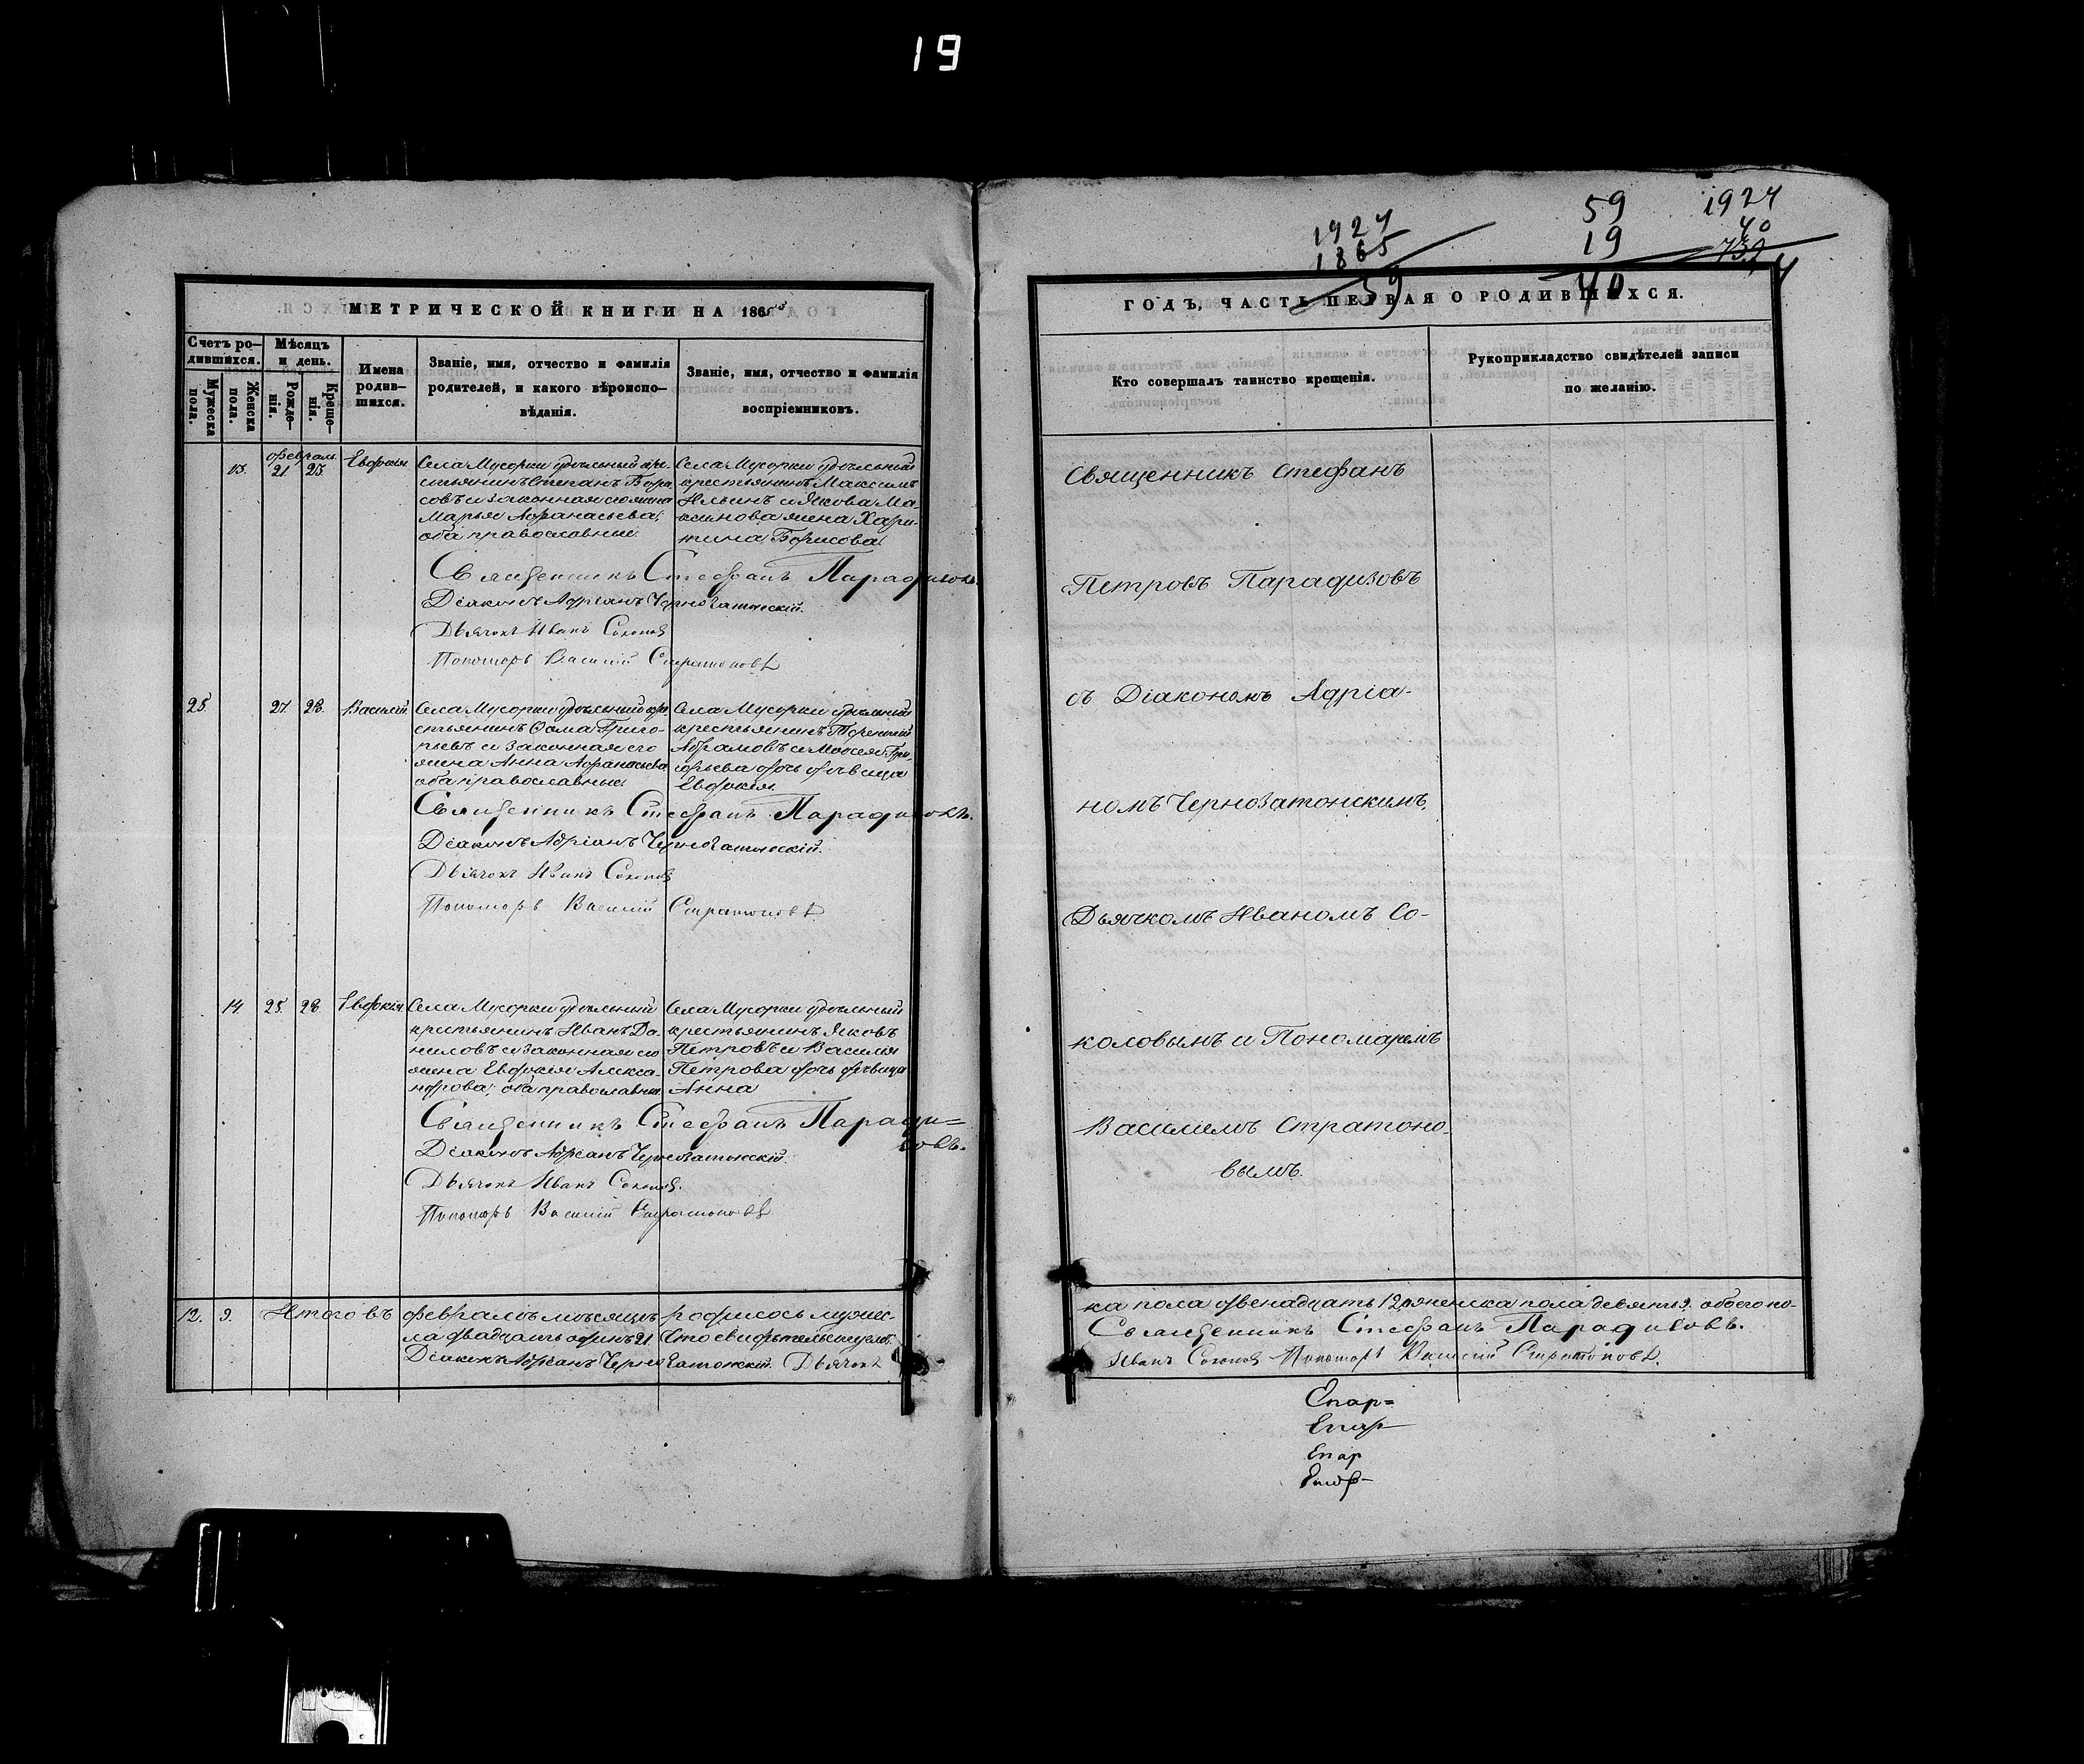 19
МЕТРИЧЕСКОЙ КНИГИ НА 186
Счетъ ро-
дившихся.
Мужеска
пола.
Женска
пола.
Мѣсяцъ
и день.
Рожде-
нія.
Креще-
нія.
Имена
родив-
шихся.
Званіе, имя, отчество и фамилія
родителей, и какого вѣроиспо-
вѣданія.
Званіе, имя, отчество и фамилія
воспріемниковъ.
февраль
13. 21. 25 Евдокія
Села Мусорки удѣльный кре-
стьянинъ Степанъ Бори-
совъ и законная его жена
Марья Афанасьева;
оба православные
Села Мусорки удѣльный
крестьянинъ Максимъ
Ильинъ и Якова Ма-
ксимова жена Хари-
тина Борисова.
Священникъ Стефанъ Парадизовъ.
Діаконъ Адріанъ Чернозатонскій.
Дьячокъ Иванъ Соколов
Пономарь Василій Стратоновъ
25. 27. 28. Василій
Села Мусорки удѣльный кре
стьянинъ Фома Григо-
рьевъ и законная его
жена Анна Афанасьева
оба православные.
Села Мусорки удѣльный
крестьянинъ Терентий
Абрамовъ и Моисея Гри-
горьева дочь дѣвица
Евдокія.
Священникъ Стефанъ Парадизовъ.
Діаконъ Адріанъ Чернозатонскій.
Дьячокъ Иванъ Соколов
Пономарь Василій Стратоновъ
14. 25. 28 Евдокія
Села Мусорки удѣльный
крестьянинъ Иванъ Да-
ниловъ и законная его
жена Евдокія Алекса-
ндрова; оба православные
Села Мусорки удѣльный
крестьянинъ Яковъ
Петровъ и Василія
Петрова дочь дѣвица
Анна
Священникъ Стефанъ Паради=
зовъ.
Діаконъ Адріанъ Чернозатонскій.
Дьячокъ Иванъ Соколов.
Пономарь Василій Стратоновъ
12. 9. Итого въ февралѣ мѣсяцѣ родилось мужес-
ла двадцать одинъ 21. Сто свидѣтельствуемъ.
Діаконъ Адріанъ Чернозатонскій. Дьячокъ
1924
1865
59
59
19
40
1924
40
ГОДЪ, ЧАСТЬ ПЕРВАЯ О РОДИВШИХСЯ.
Кто совершалъ таинство крещенія.
Рукоприкладство свидѣтелей записи
по желанію.
Священникъ Стефанъ
Петровъ Парадизовъ
съ Діакономъ Адріа-
номъ Чернозатонскимъ,
Дьячкомъ Иваномъ Со-
коловымъ и Пономаремъ
Василіемъ Стратоно-
вымъ.
ка пола двенадцать 12, женска пола девять 9. обоего по-
Священникъ Стефанъ Парадизовъ.
Иванъ Соколов Пономарь Василій Стратоновъ.
Епар=
Епар
Епар
Епар-